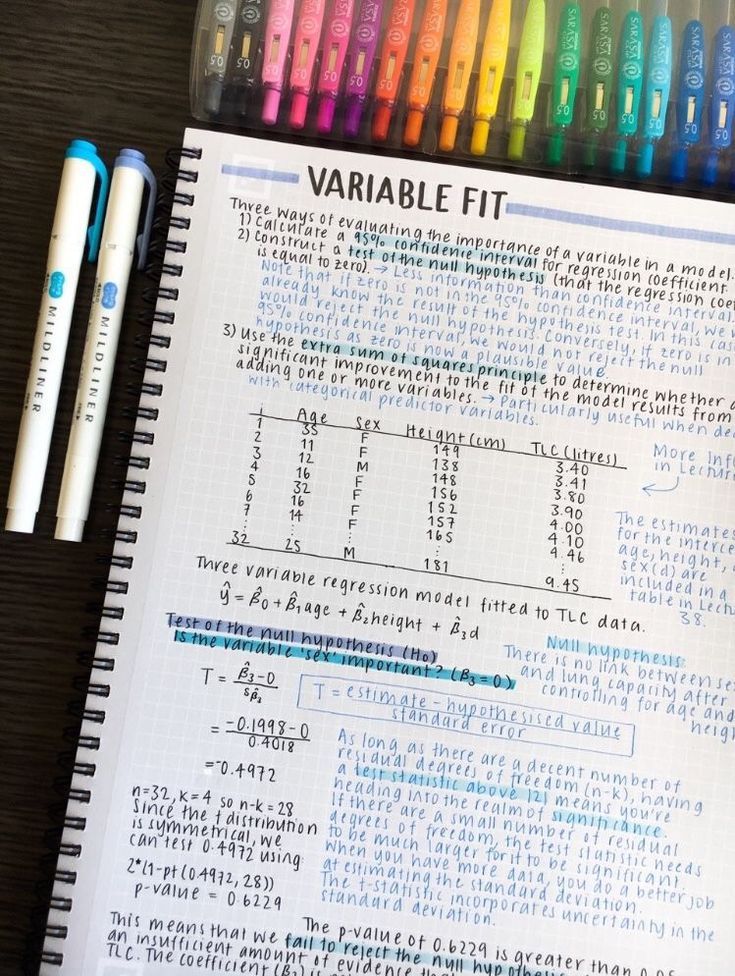 SARASA
0.5
MILDLINER
MILDLINER
VARIABLE FIT
Three ways of evaluating the importance of a variable in a model.
1) Calculate a 95% confidence interval for regression coefficient
2) Construct a test of the null hypothesis (that the regression
is equal to zero). → Less information than confidence interval.
Note that if zero is not in the 95% confidence interval, we
already know the result of the hypothesis test. In this
would reject the null hypothesis. Conversely, if zero is in
95% confidence interval, we would not reject the null
hypothesis as zero is now a plausible value.
3) Use the extra sum of squares principle to determine whether a
significant improvement to the fit of the model results from
adding one or more variables. → Particularly useful when
with categorical predictor variables.
i Age Sex Height (cm) TLC (litres)
1 35 F 149 3.40
2 11 F 138 3.41
3 12 M 148 3.80
4 16 F 156 3.90
5 32 F 152 4.00
6 16 F 157 4.10
7 14 F 165 4.46
⋮ ⋮ ⋮ ⋮ ⋮
32 25 M 181 9.45
More
in
The estimates
for the
age, height,
sex(d) are
included in a
table in
38.
Three variable regression model fitted to TLC data.
ŷ = β̂0 + β̂1age + β̂2height + β̂3d
Test of the null hypothesis (H0)
Is the variable 'sex' important? (β3 = 0)
Null hypothesis:
There is no link between
and lung capacity after
controlling for age and
T = β̂3 - 0
sβ̂3
T = estimate - hypothesised value
standard error
= -0.1998 - 0
0.4018
= -0.4972
As long as there are a decent number of
residual degrees of freedom (n-k), having
a test statistic above |2| means you're
heading into the realm of significance.
If there are a small number of residual
degrees of freedom, the test statistic needs
to be much larger for it to be significant.
When you have more data, you do a better job
at estimating the standard deviation.
The t-statistic incorporates uncertainty in the
standard deviation.
n=32, k=4 so n-k=28
Since the t distribution
is symmetrical, we
can test 0.4972 using:
2*(1-pt(0.4972, 28))
p-value = 0.6229
The p-value of 0.6229 is greater than
This means that we fail to reject the null
an insufficient amount of evidence
TLC. The coefficient